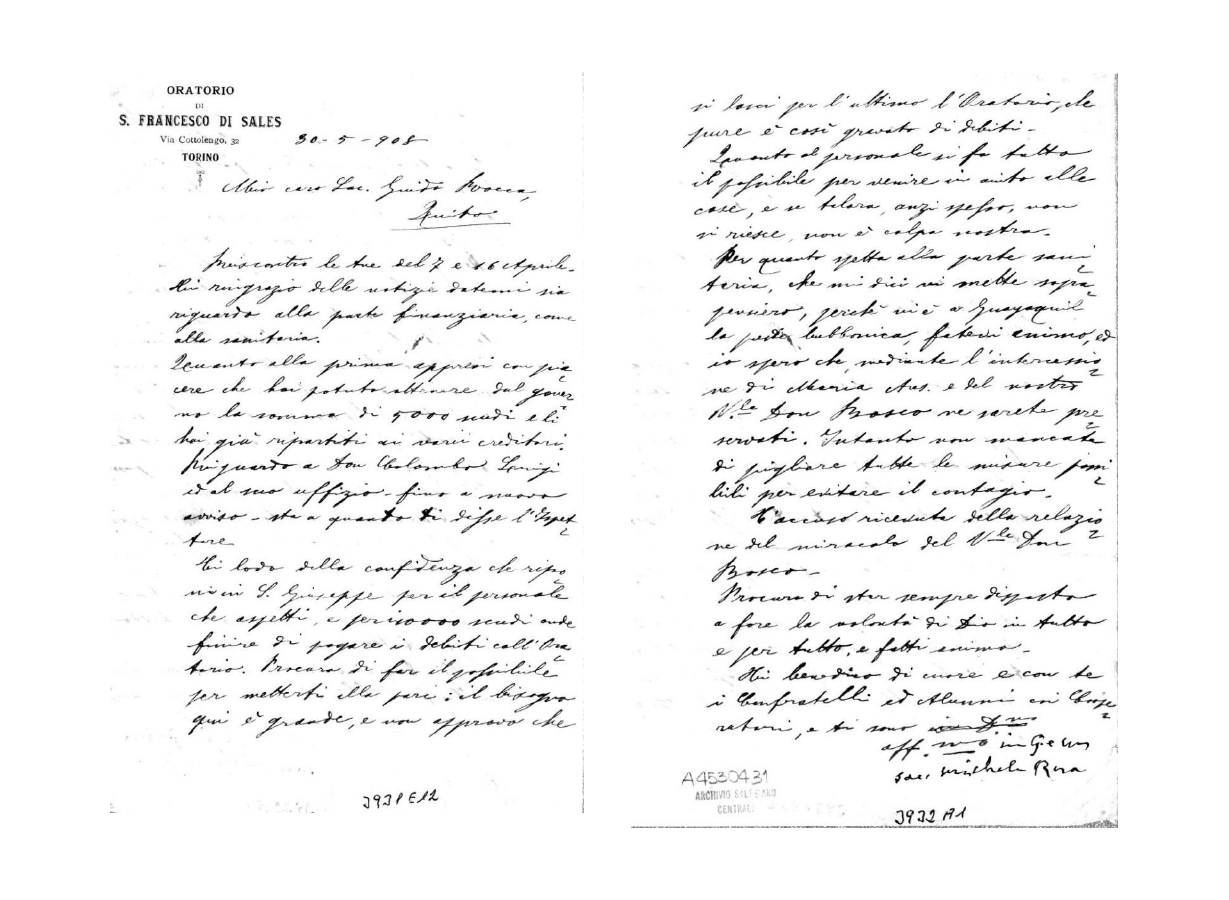 ORATORIO
DI
S. FRANCESCO DI SALES
Via Cottolengo, 32
TORINO
30-5-908
Mio caro Sac. Guido Rocca,
Quito
Riscontro le tue del 7 e 16 Aprile.
Ti ringrazio delle notizie datemi sia
riguardo alla parte finanziaria, come
alla sanitaria.
Quanto alla prima appresi con pia
cere che hai potuto ottenere dal gover
no la somma di 5000 scudi e li
hai già ripartiti ai varii creditori.
Riguardo a Don Colombo Luigi
ed al suo uffizio - fino a nuovo
avviso - sta a quanto ti disse l'Ispet
tore
Ti lodo della confidenza che ripo
ni in S. Giuseppe per il personale
che aspetti, e per 10000 scudi onde
finire di pagare i debiti coll'Ora
torio. Procura di far il possibile
per metterti alla pari: il bisogno
qui è grande, e non approvo che
J931E12
si lasci per l'ultimo l'Oratorio, che
pure è così gravato di debiti -
Quanto al personale si fa tutto
il possibile per venire in aiuto alle
case, e se talora, anzi spesso, non
si riesce, non è colpa nostra.
Per quanto spetta alla parte sani
taria, che mi dici vi mette sopra
pensiero, perchè vi è a Guayaquil
la peste bubbonica, fatevi animo, ed
io spero che, mediante l'intercessio
ne di Maria Aus. e del nostro
V.le Don Bosco ne sarete pre
servati. Intanto non mancate
di pigliare tutte le misure possi
bili per evitare il contagio.
T'accuso ricevuta della relazio
ne del miracolo del V.le Don
Bosco -
Procura di star sempre disposto
a fare la volontà di Dio in tutto
e per tutto, e fatti animo -
Ti benedico di cuore e con te
i Confratelli ed Alunni coi Coope
ratori, e ti sono
aff.mo in G e M
Sac. Michele Rua
A4530431
ARCHIVIO SALESIANO
CENTRALE
J932A1